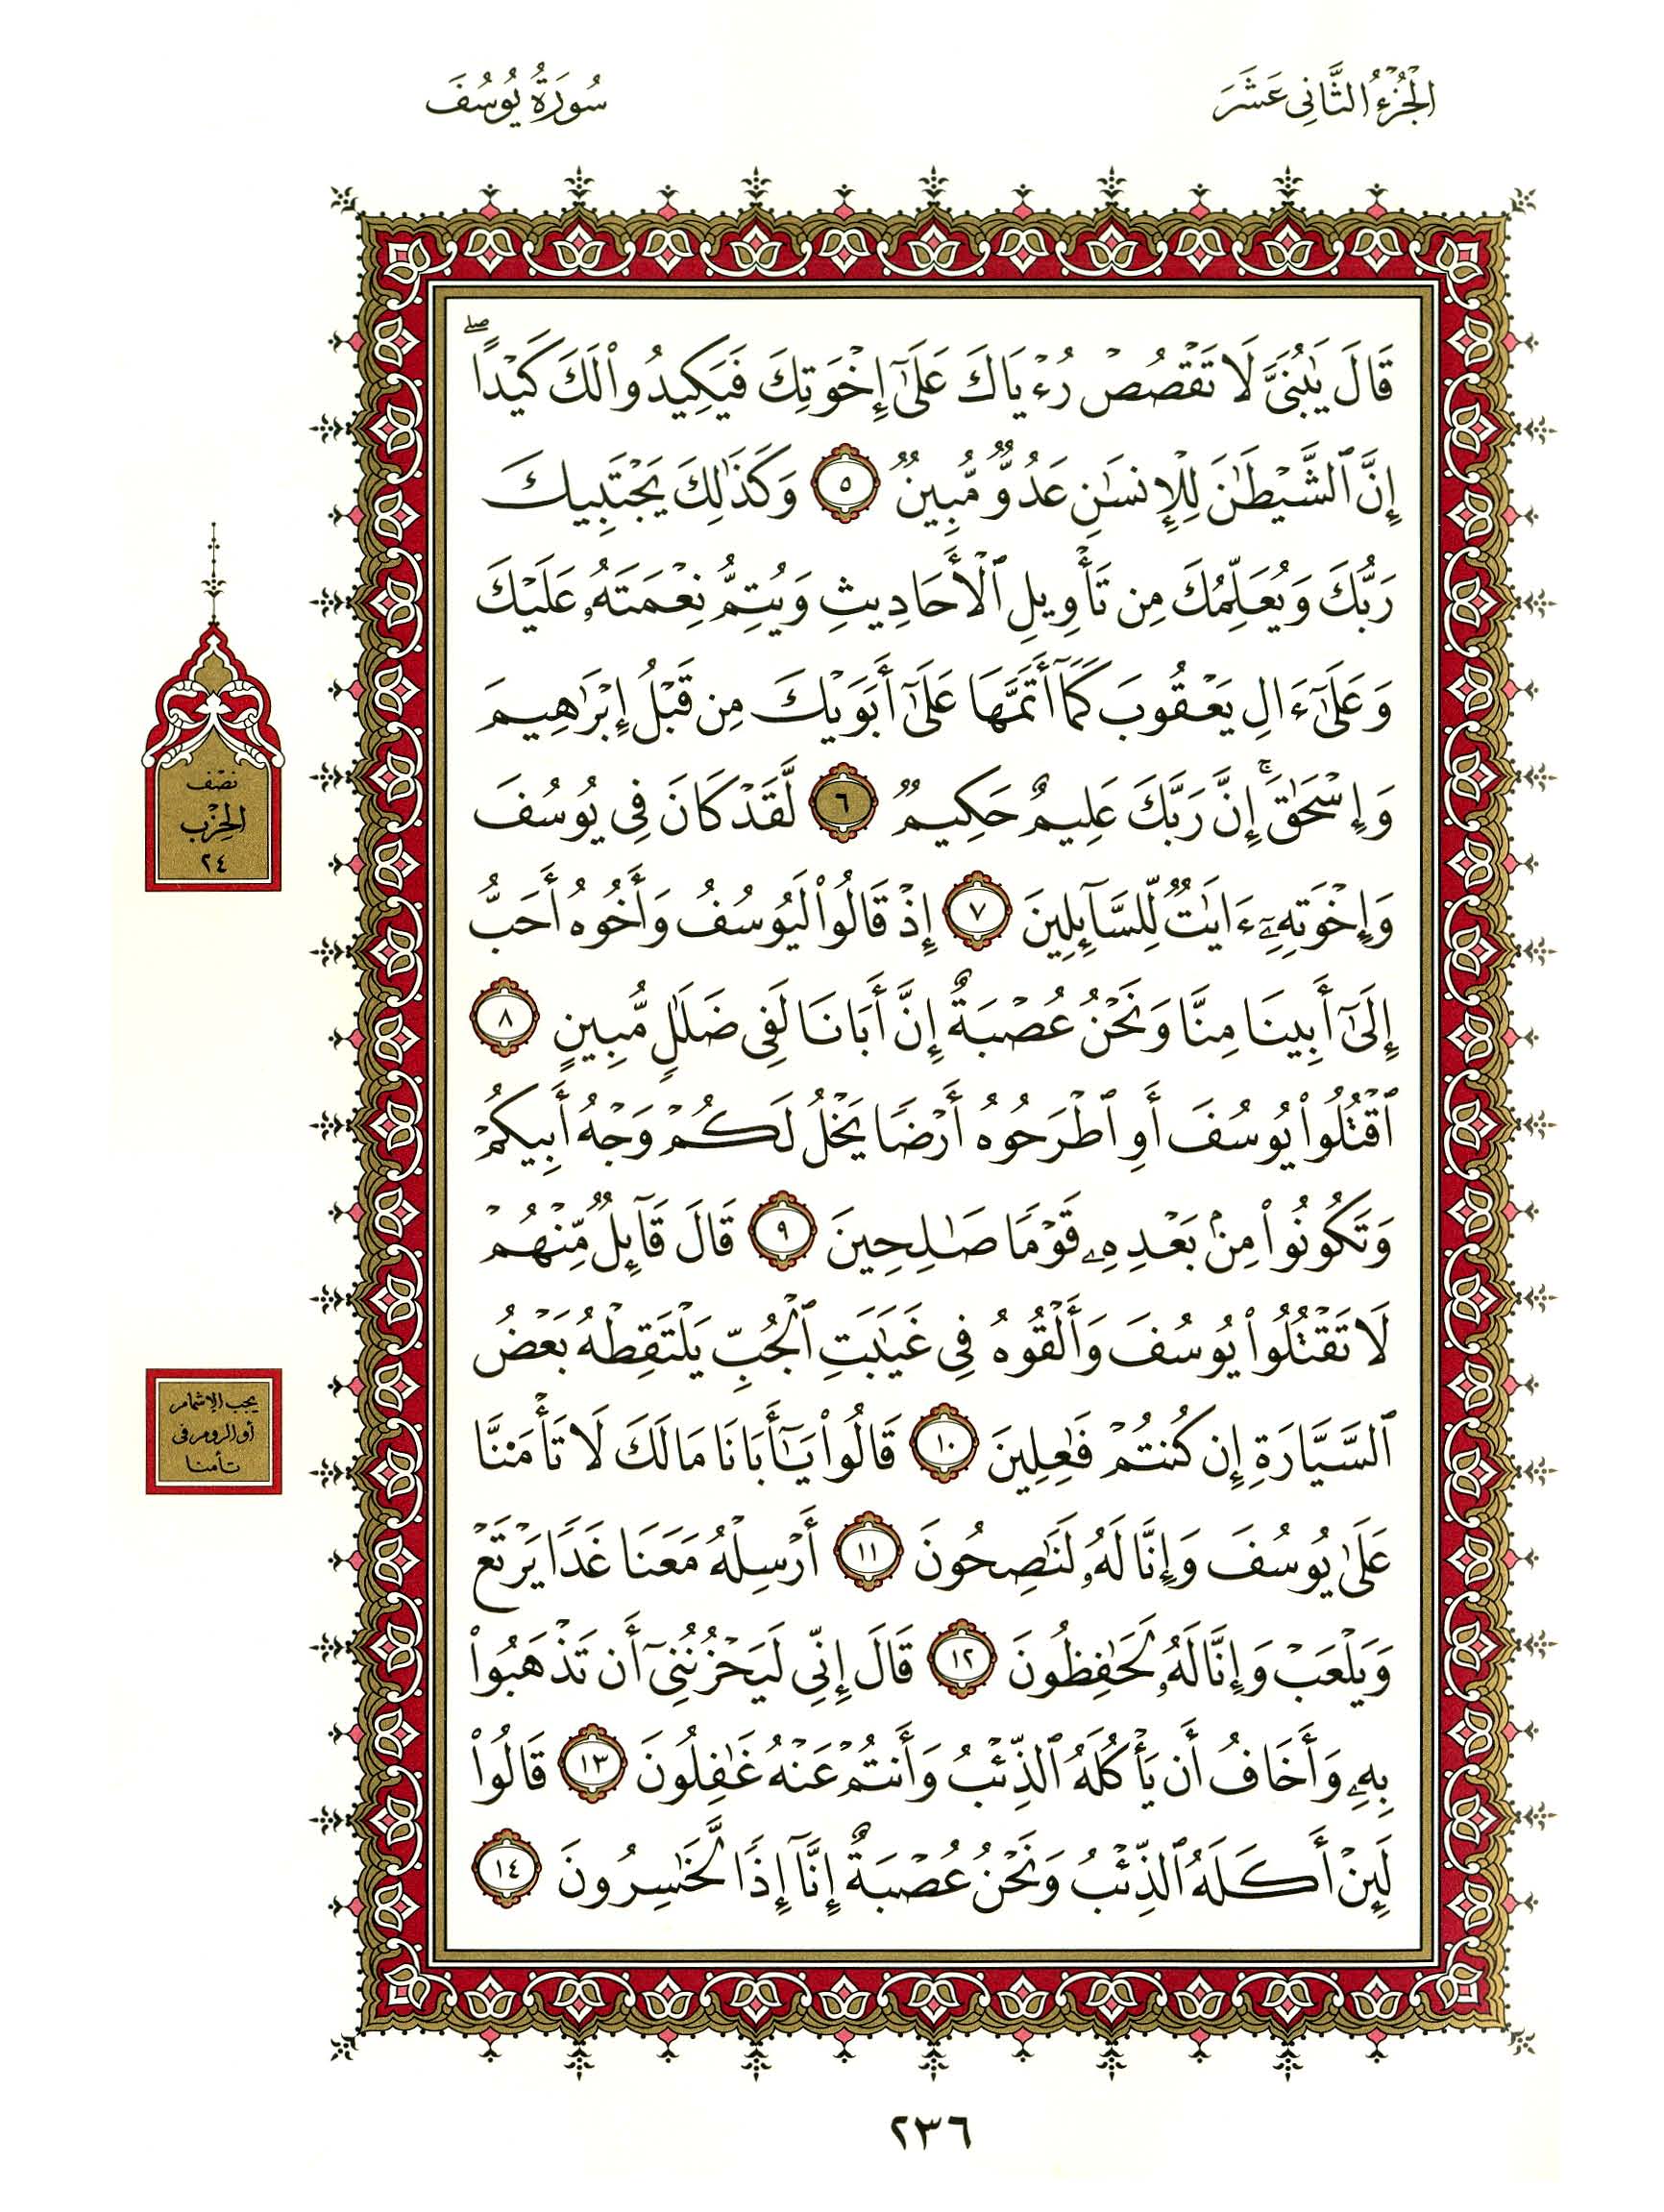 الجُزْءُ الثَّانِي عَشَرَ
سُورَةُ يُوسُفَ
قَالَ يَٰبُنَىَّ لَا تَقْصُصْ رُءْيَاكَ عَلَىٰٓ إِخْوَتِكَ فَيَكِيدُوا۟ لَكَ كَيْدًا ۖ
إِنَّ ٱلشَّيْطَٰنَ لِلْإِنسَٰنِ عَدُوٌّ مُّبِينٌ ٥ وَكَذَٰلِكَ يَجْتَبِيكَ
رَبُّكَ وَيُعَلِّمُكَ مِن تَأْوِيلِ ٱلْأَحَادِيثِ وَيُتِمُّ نِعْمَتَهُۥ عَلَيْكَ
وَعَلَىٰٓ ءَالِ يَعْقُوبَ كَمَآ أَتَمَّهَا عَلَىٰٓ أَبَوَيْكَ مِن قَبْلُ إِبْرَٰهِيمَ
وَإِسْحَٰقَ ۚ إِنَّ رَبَّكَ عَلِيمٌ حَكِيمٌ ٦ لَّقَدْ كَانَ فِى يُوسُفَ
وَإِخْوَتِهِۦٓ ءَايَٰتٌ لِّلسَّآئِلِينَ ٧ إِذْ قَالُوا۟ لَيُوسُفُ وَأَخُوهُ أَحَبُّ
إِلَىٰٓ أَبِينَا مِنَّا وَنَحْنُ عُصْبَةٌ إِنَّ أَبَانَا لَفِى ضَلَٰلٍ مُّبِينٍ ٨
ٱقْتُلُوا۟ يُوسُفَ أَوِ ٱطْرَحُوهُ أَرْضًا يَخْلُ لَكُمْ وَجْهُ أَبِيكُمْ
وَتَكُونُوا۟ مِنۢ بَعْدِهِۦ قَوْمًا صَٰلِحِينَ ٩ قَالَ قَآئِلٌ مِّنْهُمْ
لَا تَقْتُلُوا۟ يُوسُفَ وَأَلْقُوهُ فِى غَيَٰبَتِ ٱلْجُبِّ يَلْتَقِطْهُ بَعْضُ
ٱلسَّيَّارَةِ إِن كُنتُمْ فَٰعِلِينَ ١٠ قَالُوا۟ يَٰٓأَبَانَا مَا لَكَ لَا تَأْمَ۫نَّا
عَلَىٰ يُوسُفَ وَإِنَّا لَهُۥ لَنَٰصِحُونَ ١١ أَرْسِلْهُ مَعَنَا غَدًا يَرْتَعْ
وَيَلْعَبْ وَإِنَّا لَهُۥ لَحَٰفِظُونَ ١٢ قَالَ إِنِّى لَيَحْزُنُنِىٓ أَن تَذْهَبُوا۟
بِهِۦ وَأَخَافُ أَن يَأْكُلَهُ ٱلذِّئْبُ وَأَنتُمْ عَنْهُ غَٰفِلُونَ ١٣ قَالُوا۟
لَئِنْ أَكَلَهُ ٱلذِّئْبُ وَنَحْنُ عُصْبَةٌ إِنَّآ إِذًا لَّخَٰسِرُونَ ١٤
نصف
الحِزْب
٢٤
يجب الإشمام
أو الروم في
تأمنا
٢٣٦